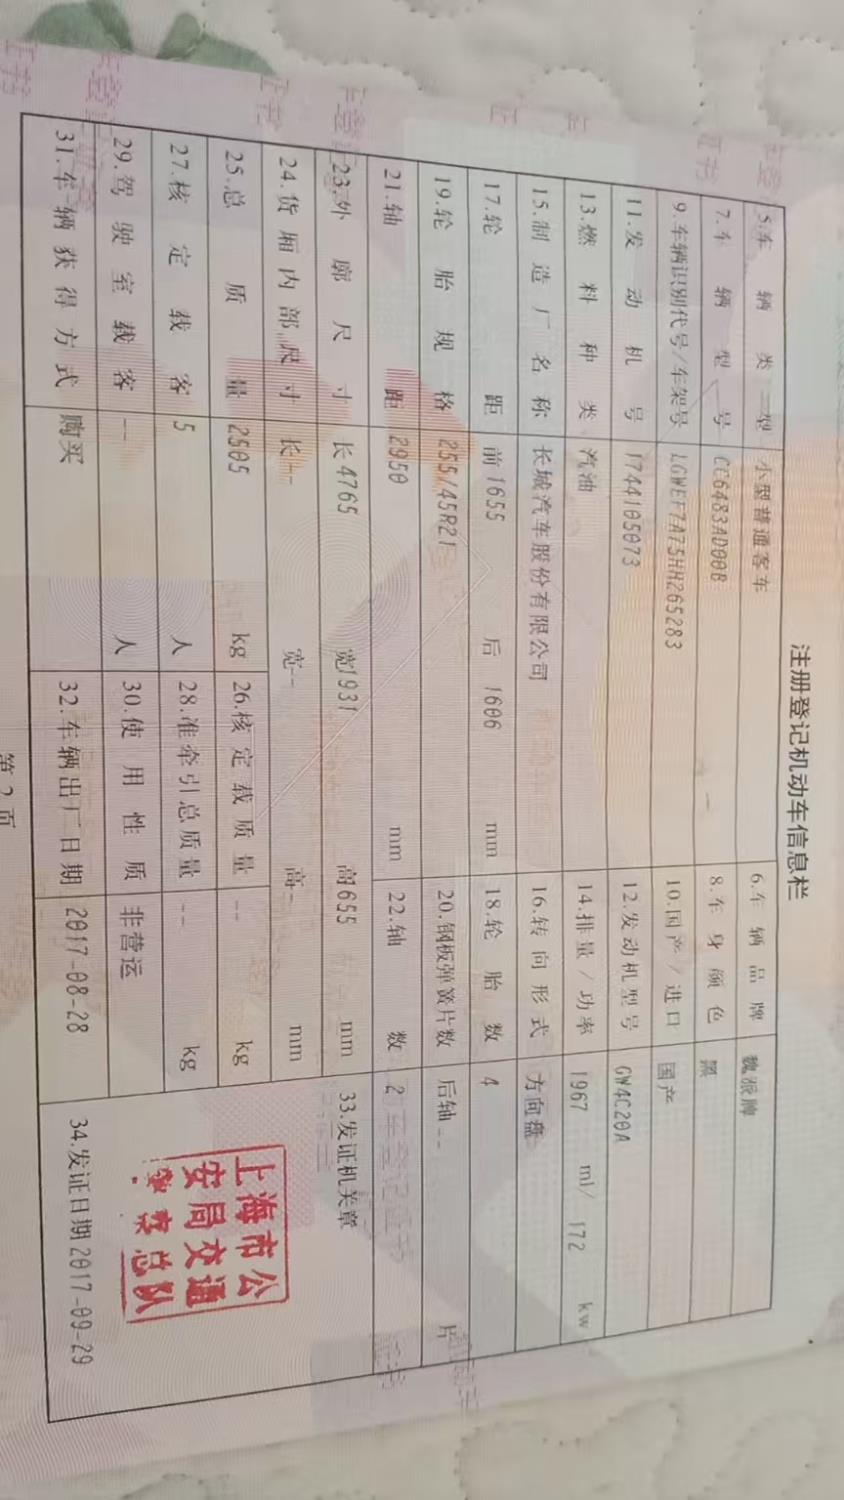 注册登记机动车信息栏
5.车辆类型 小型普通客车 6.车辆品牌 魏派牌
7.车辆型号 CC6483AD00B 8.车身颜色 黑
9.车辆识别代号/车架号 LGWEF7A75HH265283 10.国产/进口 国产
11.发动机号 1744105073 12.发动机型号 GW4C20A
13.燃料种类 汽油 14.排量/功率 1967 ml/ 172 kw
15.制造厂名称 长城汽车股份有限公司 16.转向形式 方向盘
17.轮距 前1655 后 1606 mm 18.轮胎数 4
19.轮胎规格 255/45R21 20.钢板弹簧片数 后轴-- 片
21.轴距 2950 mm 22.轴数 2
23.外廓尺寸 长4765 宽1931 高1655 mm 33.发证机关章
24.货厢内部尺寸 长-- 宽-- 高-- mm
25.总质量 2505 kg 26.核定载质量 -- kg
27.核定载客 5 人 28.准牵引总质量 -- kg
29.驾驶室载客 -- 人 30.使用性质 非营运
31.车辆获得方式 购买 32.车辆出厂日期 2017-08-28 34.发证日期 2017-09-29
上海市公
安局交通
警察总队
第2页